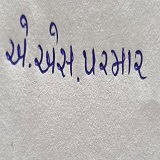 એ.એસ.પરમાર